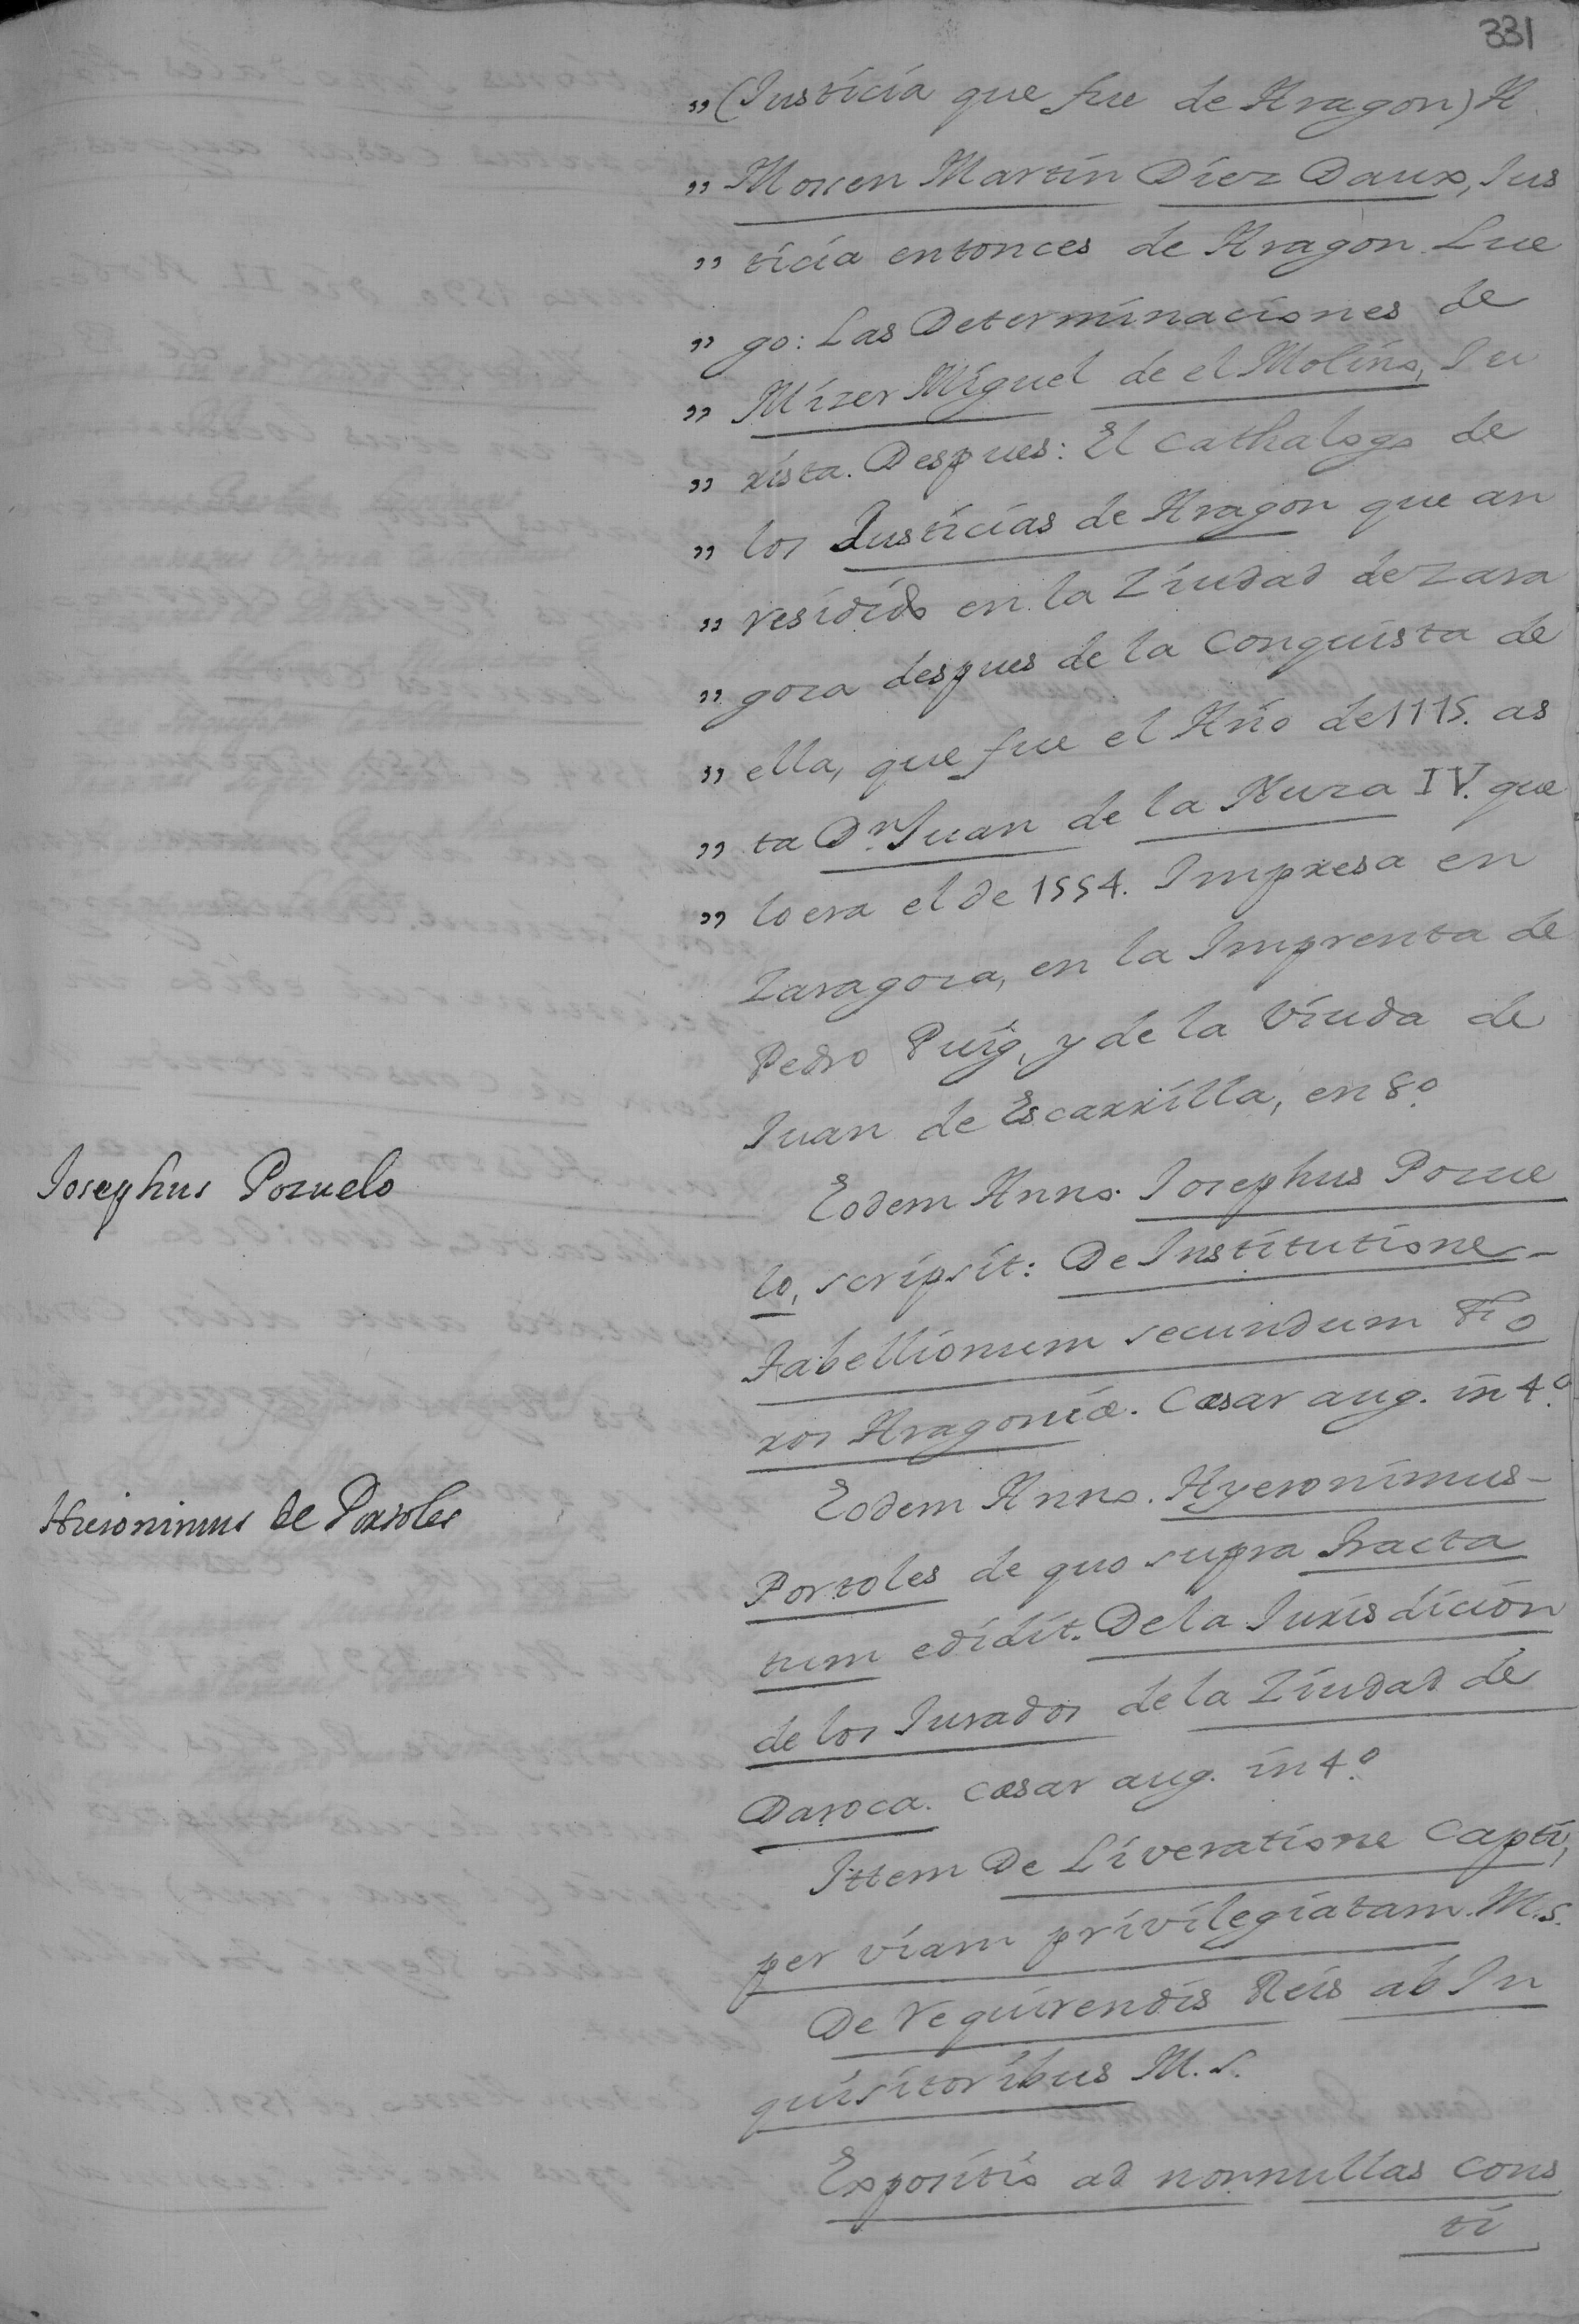 331
„ (Justicia que fue de Aragon) A
„ Mossen Martin Diez Daux, Jus
„ ticia entonces de Aragon. Lue
„ go: Las Determinaciones de
„ Mizer Miguel de el Molino, Ju
„ rista. Despues: El Cathalogo de
„ los Justicias de Aragon que an
„ residido en la Ziudad de Zara
„ goza despues de la Conquista de
„ ella, que fue el Año de 1115. as
„ ta Dn. Juan de la Nuza IV. que
„ lo era el de 1554. Impresa en
Zaragoza, en la Imprenta de
Pedro Puig, y de la Viuda de
Juan de Escarrilla, en 8.o
Josephus Pozuelo
Eodem Anno. Josephus Pozue
lo, scripsit: De Institutione
Tabellionum secundum Fo
ros Aragoniæ. Cæsar aug. in 4.o
Hieronimus de Portoles
Eodem Anno. Hyeronimus
Portoles de quo supra Tracta
tum edidit. De la Jurisdicion
de los Jurados de la Ziudad de
Daroca. Cæsar aug. in 4.o
Ittem De Liveratione Capti,
per viam privilegiatam. M.s.
De requirendis Reis ab In
quisitoribus M.s.
Expositio ad nonnullas cons
ti